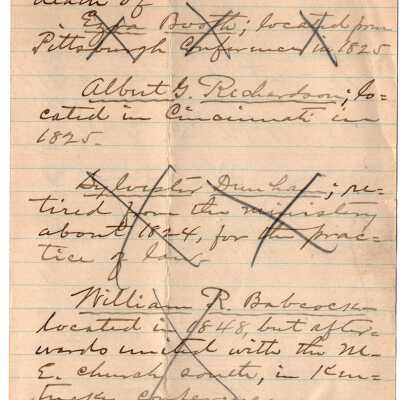 death of
Ezra Booth; located from
Pittsburgh Conference in 1825
Albert G. Richardson; lo-
cated in Cincinnati in
1825.
Sylvester Dunham; re-
tired from the ministry
about 1824, for the prac-
tice of law
William R. Babcock
located in 1848, but after-
wards united with the M.
E. church south, in Ken-
tucky conference